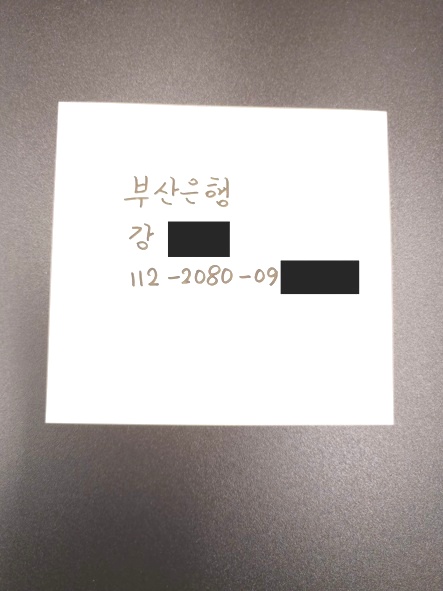 부산은행
강
112-2080-09